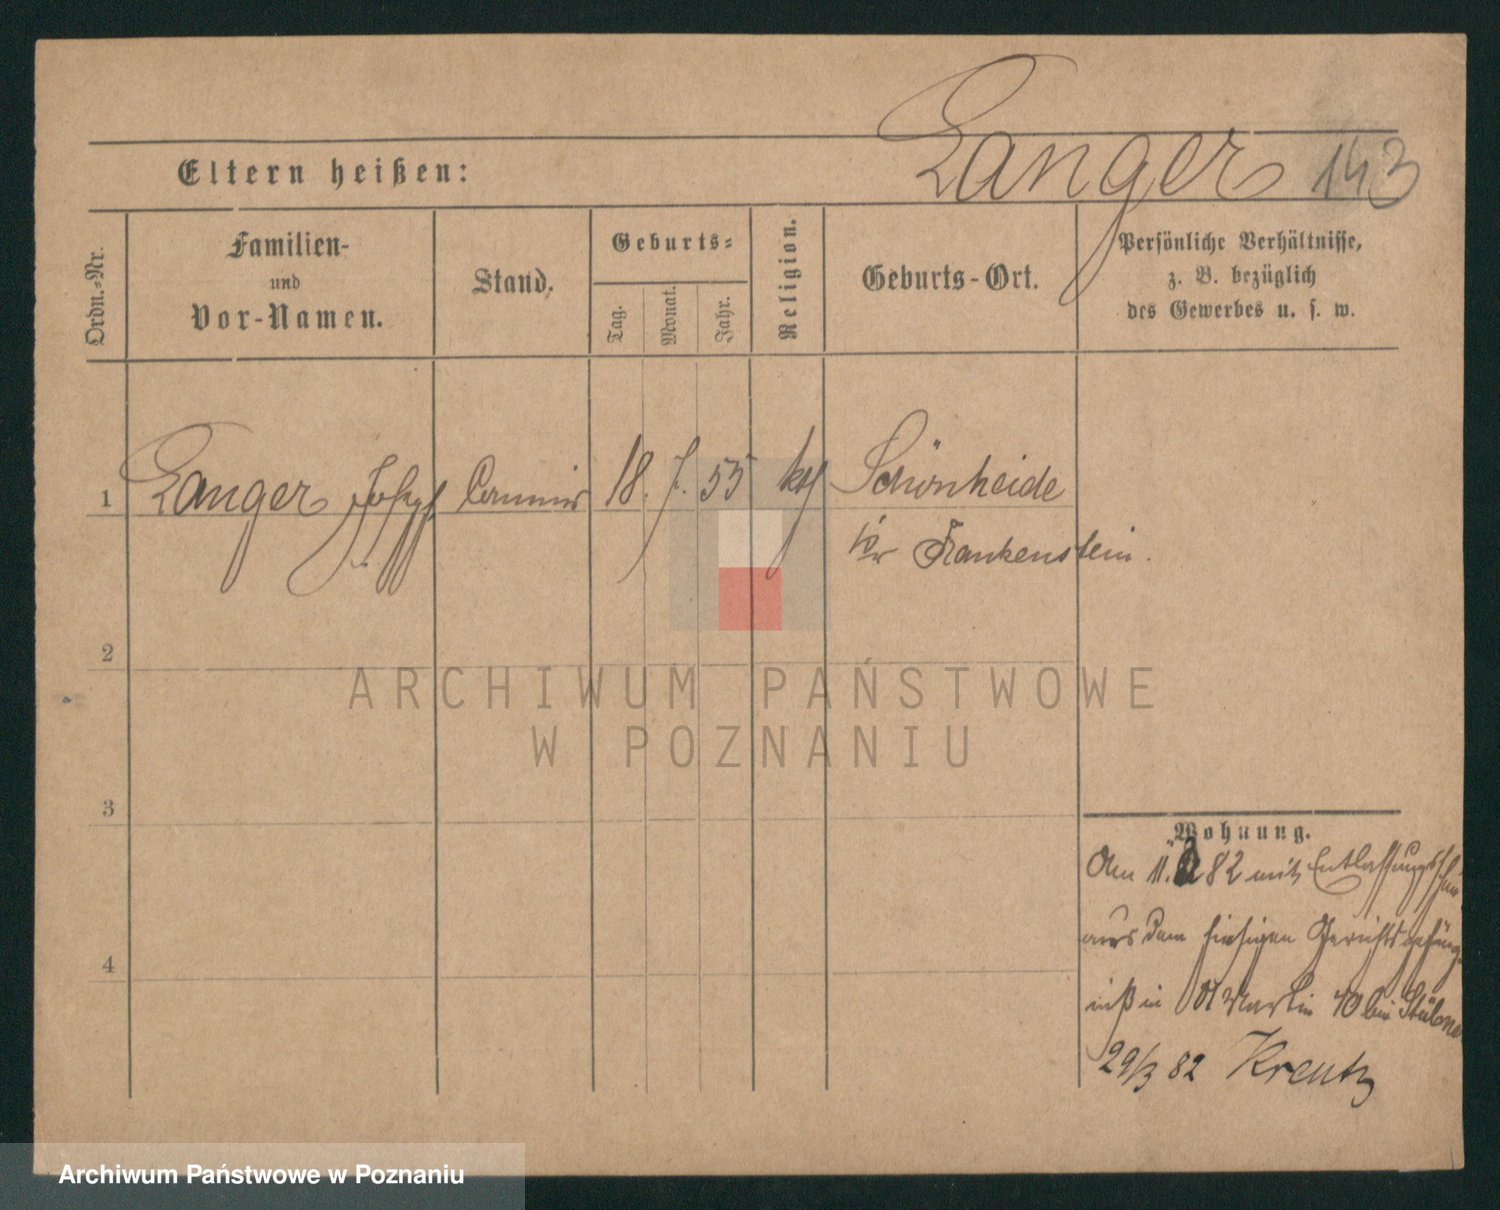 Langer 143
Eltern heißen:
Ordn.-Nr.
Familien-
und
Vor-Namen.
Stand.
Geburts-
Tag.
Monat.
Jahr.
Religion.
Geburts-Ort.
Persönliche Verhältnisse,
z. B. bezüglich
des Gewerbes u. s. w.
1 Langer Josef Commis 18. 7. 55 kth Schönheide
Kr Frankenstein.
2
3
4
Wohnung.
Am 11. 82 mit Entlassungsschein
aus dem hiesigen Gerichtsgefäng
niß in St Martin 40 bei
29/3 82 Kreutz
ARCHIWUM PAŃSTWOWE
W POZNANIU
Archiwum Państwowe w Poznaniu